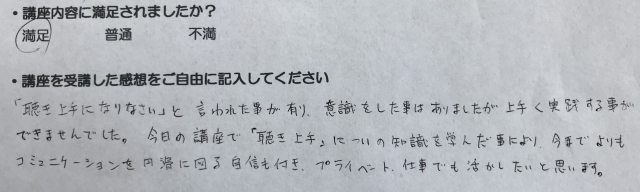 ・講座内容に満足されましたか？
満足 普通 不満
・講座を受講した感想をご自由に記入してください
「聴き上手になりなさい」と言われた事が有り、意識をした事はありましたが上手く実践する事が
できませんでした。今日の講座で「聴き上手」についの知識を学んだ事により、今までよりも
コミュニケーションを円滑に図る自信も付き、プライベート、仕事でも活かしたいと思います。